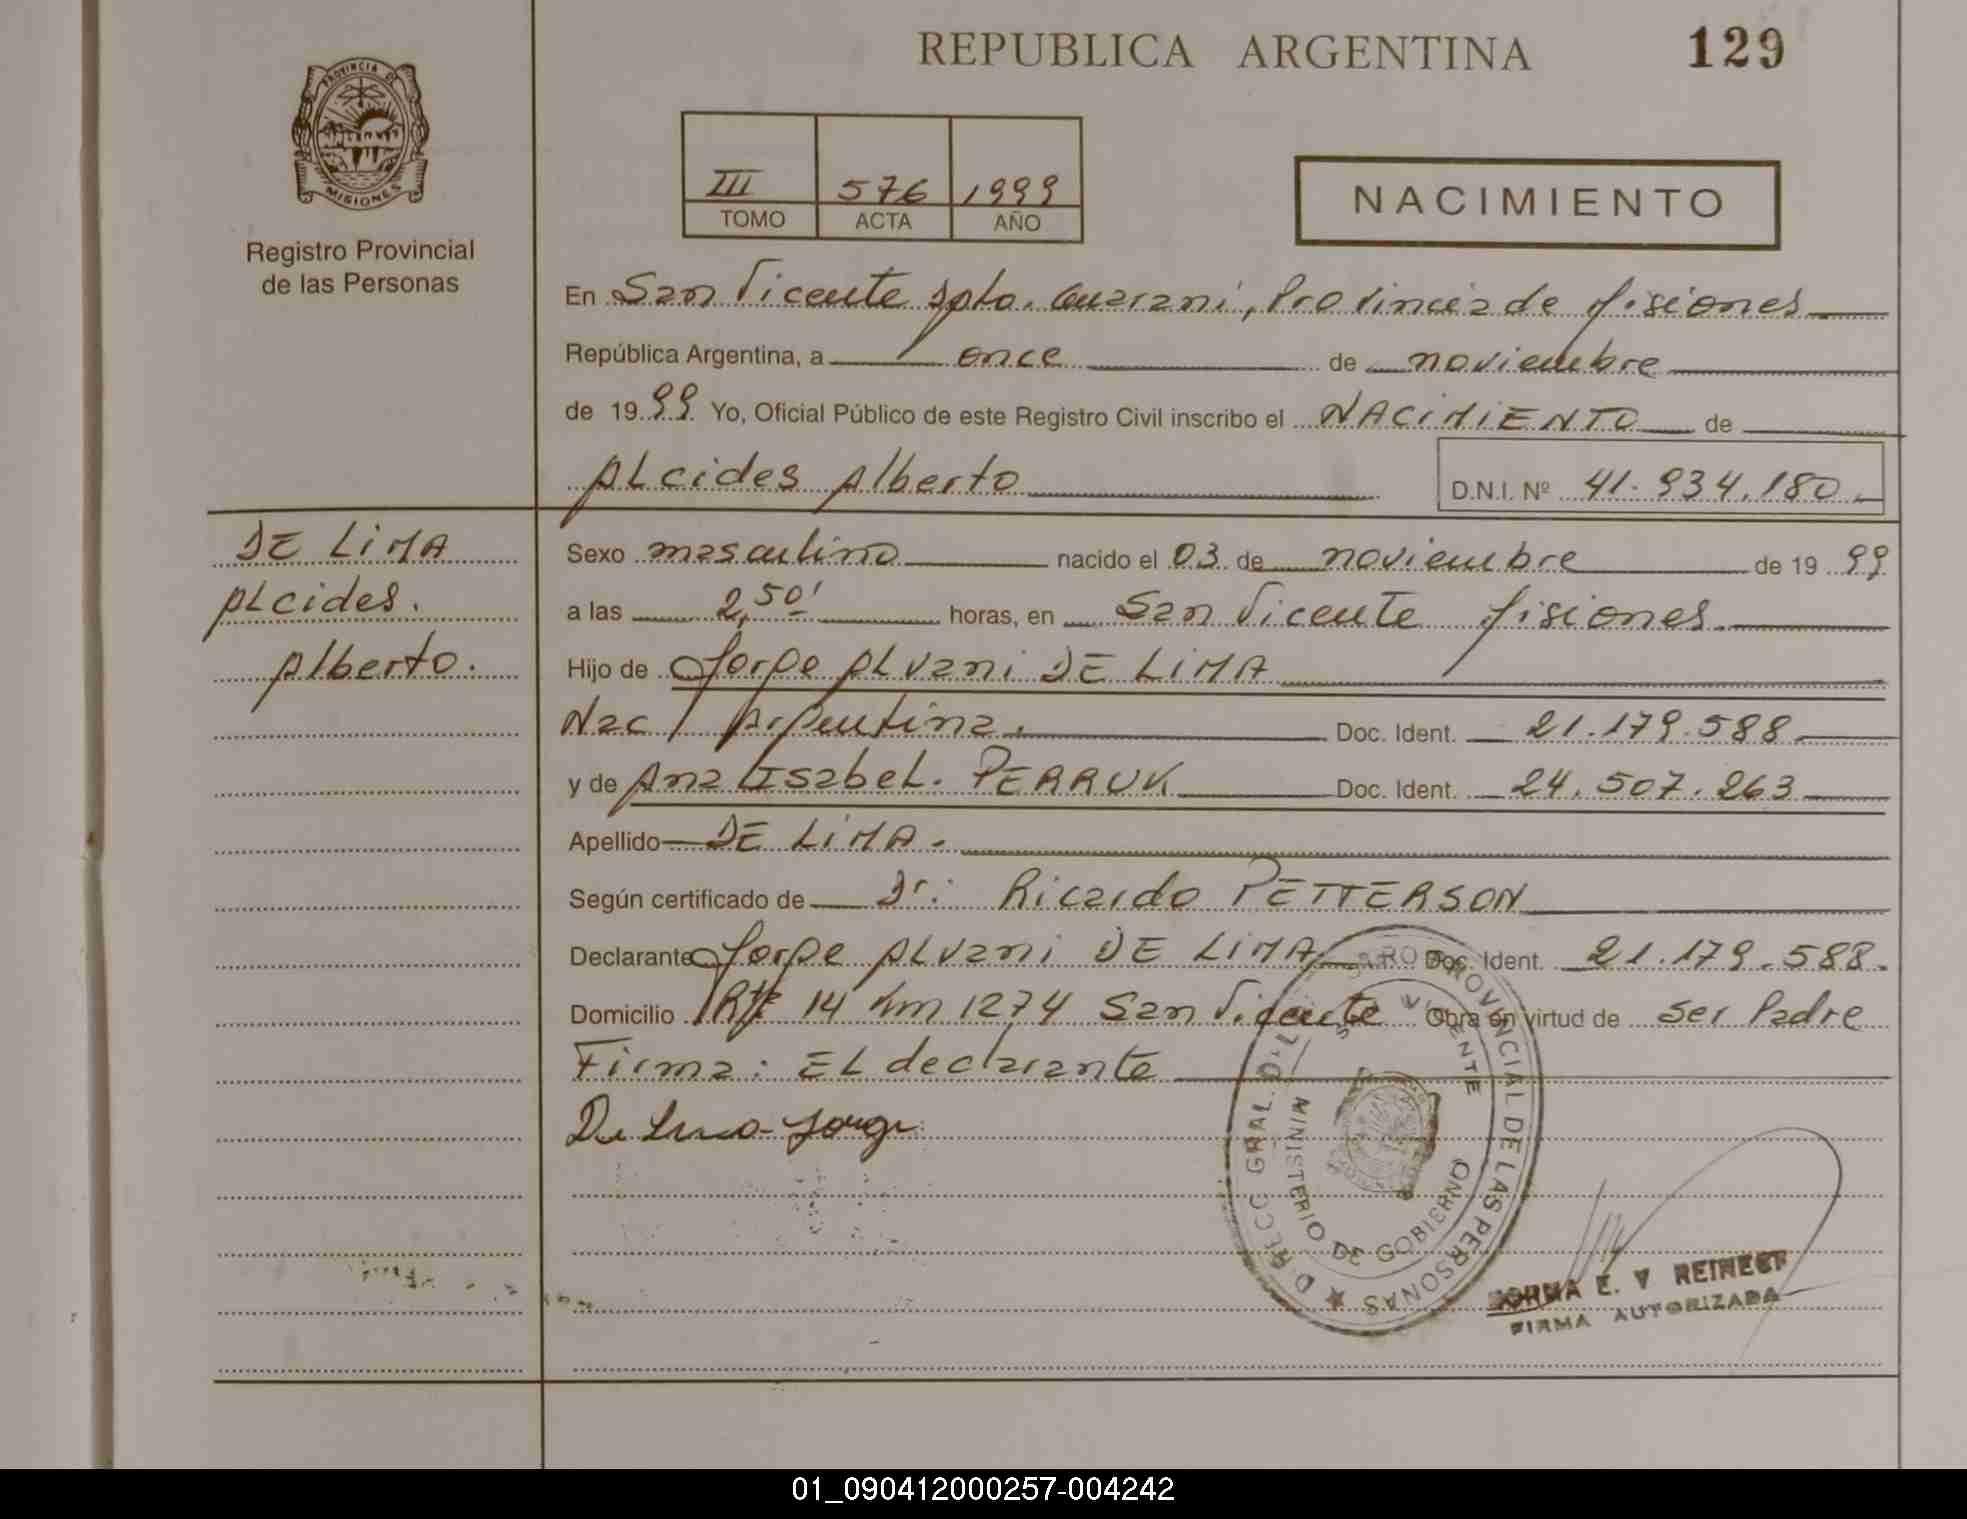 REPUBLICA ARGENTINA
129
PROVINCIA DE MISIONES
Registro Provincial
de las Personas
III 576 1999
TOMO ACTA AÑO
NACIMIENTO
En San Vicente Dpto. Guaraní, Provincia de Misiones
República Argentina, a once de noviembre
de 1999 Yo, Oficial Público de este Registro Civil inscribo el NACIMIENTO de
ALcides Alberto
D.N.I. Nº 41.934.180
DE LIMA
ALcides.
Alberto.
Sexo masculino nacido el 03 de noviembre de 1999
a las 2,50' horas, en San Vicente Misiones.
Hijo de Jorge ALvani DE LIMA
Nac/ Argentina. Doc. Ident. 21.179.588
y de Ana IsabeL. PERRUK Doc. Ident. 24.507.263
Apellido DE LIMA.
Según certificado de Dr: Ricardo PETTERSON
Declarante Jorge ALvani DE LIMA Doc. Ident. 21.179.588.
Domicilio Rta 14 Km 1274 San Vicente Obra en virtud de ser Padre
Firma: EL declarante
De Lima Jorge
PROVINCIAL DE LAS PERSONAS
MINISTERIO DE GOBIERNO
FIRMA AUTORIZADA
01_090412000257-004242